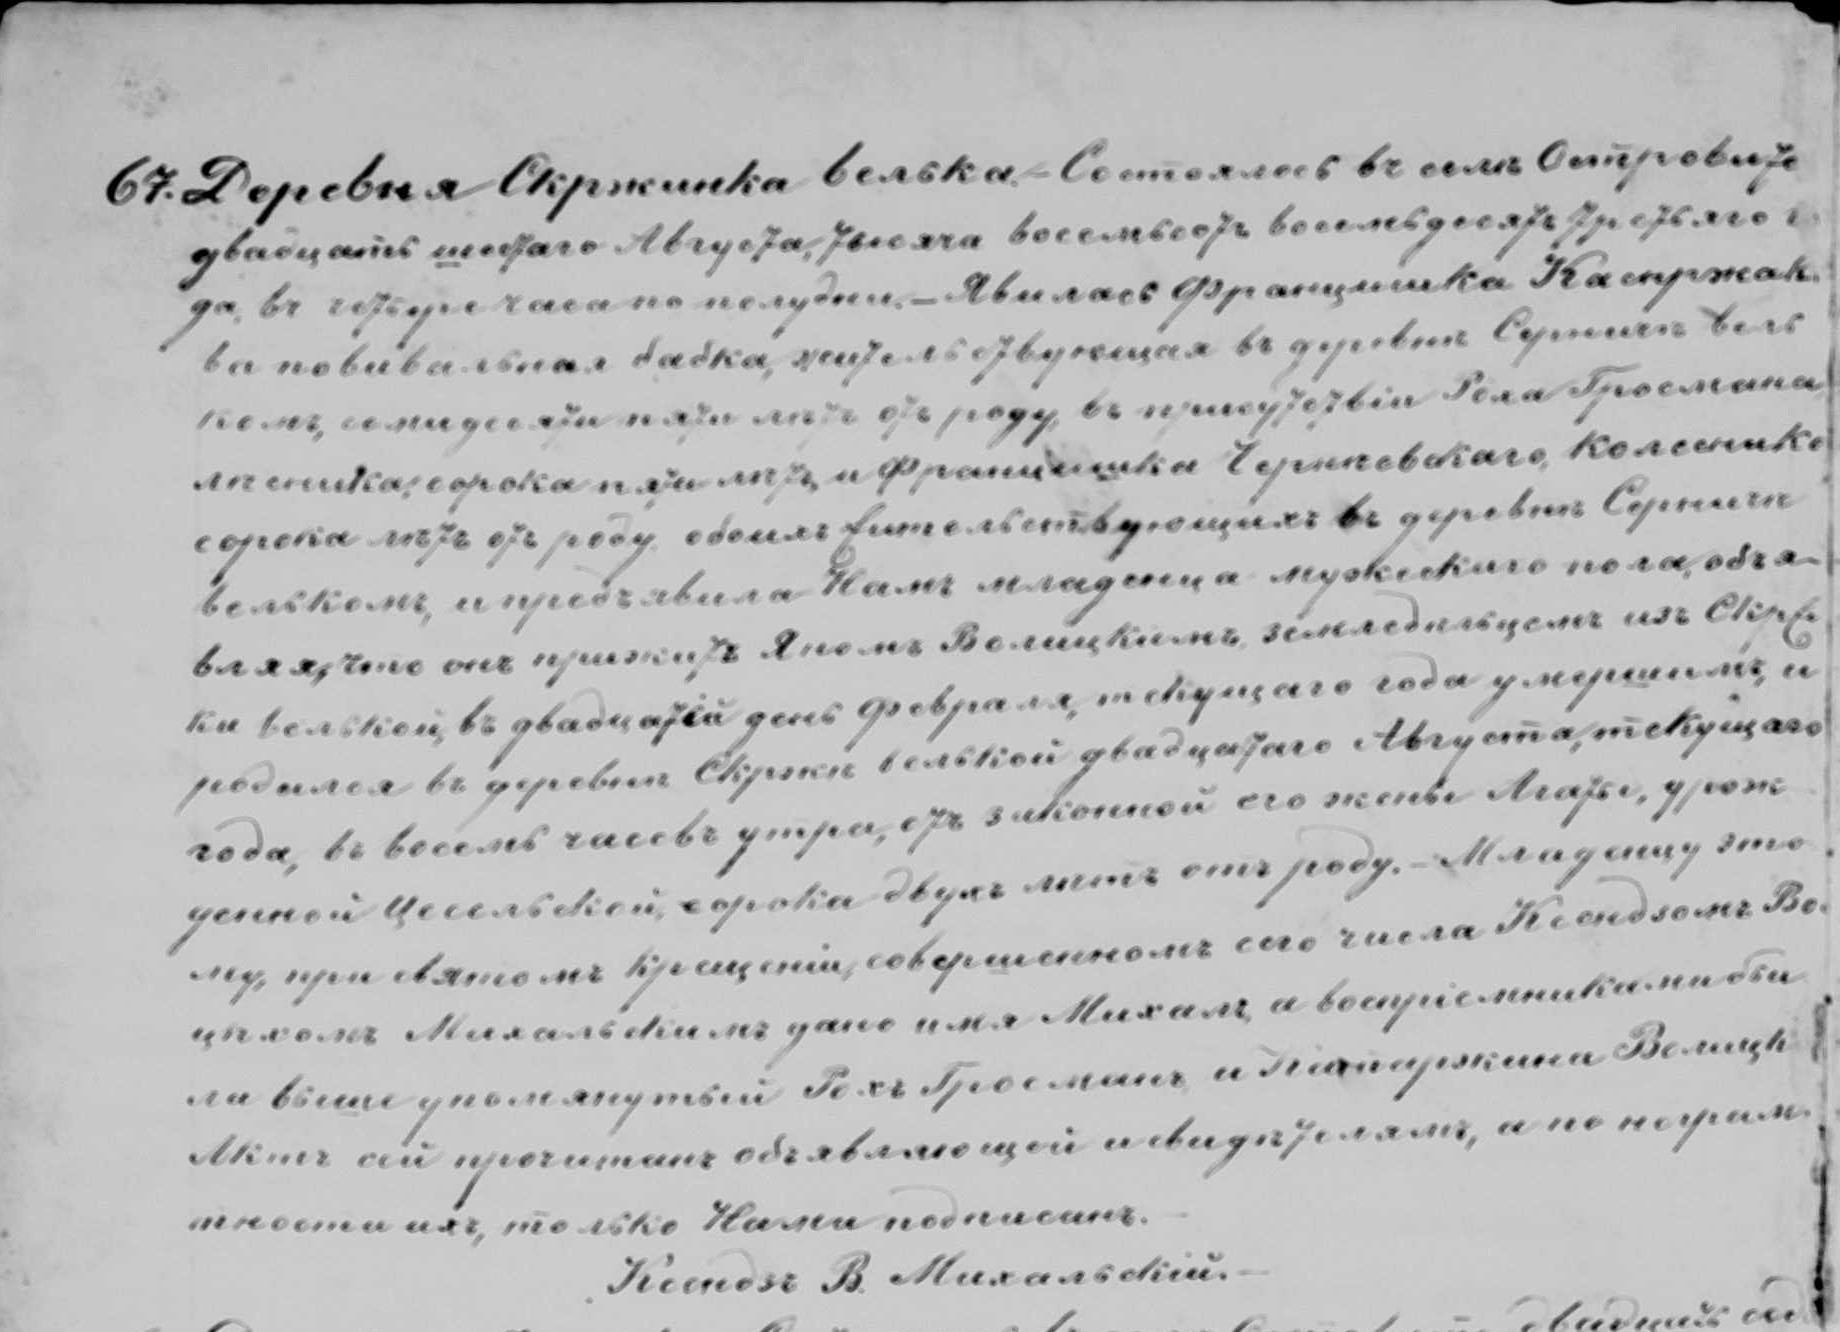 67. Деревня Скржинка велька. – Состоялось въ селѣ Островите
двадцать шестаго Августа, тысяча восемьсотъ восемьдесятъ третьяго г
да, въ четыре часа по полудни. – Явилась Францишка Каспржак.
ва повивальная бабка, жительствующая въ деревнѣ Сумичѣ вель
комъ, семидесяти пяти лѣтъ отъ роду, въ присутствіи Роха Гросмана,
сорока пяти лѣтъ, и Францишка Чернѣевскаго, колесника
сорока лѣтъ отъ роду обоихъ жительствующихъ въ деревнѣ
велькомъ, и предъявила Намъ младенца мужескаго пола, объя-
вляя, что онъ прижитъ Яномъ Волицкимъ, земледѣльцемъ изъ Скрж
ки велькой, въ двадцатый день Февраля, текущаго года умершимъ, и
родился въ деревнѣ Скржк велькой двадцатаго Августа, текущаго
года, въ восемь часовъ утра, отъ законной его жены Агаты, урож
денной Цесельской, сорока двухъ лѣтъ отъ роду. – Младенцу это
му, при святомъ крещеніи, совершенномъ сего числа Ксендзомъ Во.
цѣхомъ Михальскимъ дано имя Михалъ, а воспріемниками бы
ла выше упомянутый Рохъ Гросманъ и Катаржина Волицк
Актъ сей прочитанъ объявляющой и свидѣтелямъ, а по неграм.
тности ихъ, только Нами подписанъ. –
Ксендзъ В. Михальскій. –